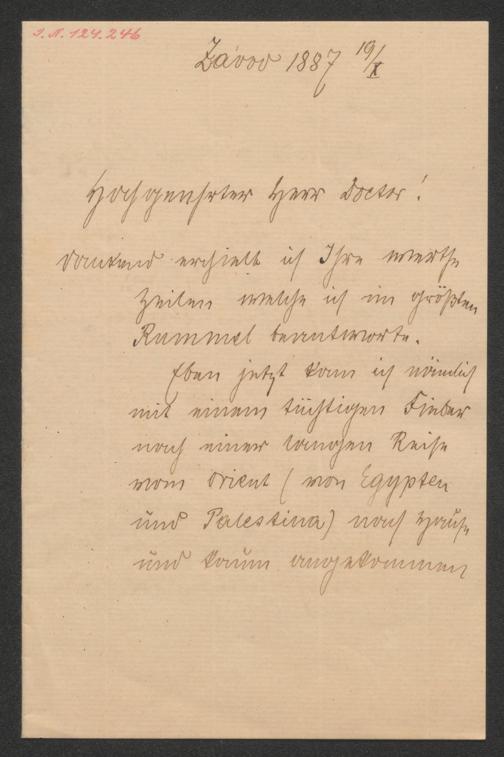 I.N. 124.246
Závod 1887 19/X
Hochgeehrter Herr Doctor!
Dankend erhielt ich Ihre werthe
Zeilen welche ich im größten
Rummel beantworte.
Eben jetzt kam ich nämlich
mit einem tüchtigen Fieber
nach einer langen Reise
vom Orient (von Egypten
und Palestina) nach Hause
und kaum angekommen